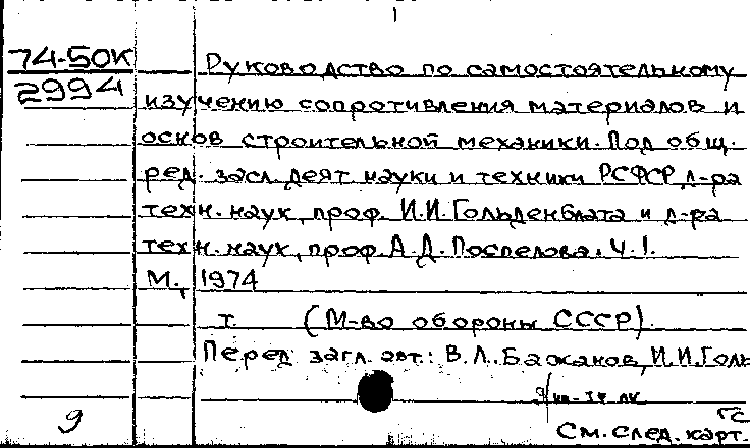 1
74-50К Руководство по самостоятельному
2994 изучению сопротивления материалов и
основ строительной механики. Под общ.
ред. засл. деят науки и техники РСФСР, д-ра
техн. наук, проф. И.И. Гольденблата и д-ра
техн. наук, проф. А.Д. Поспелова. Ч. 1.
М., 1974
т. (М-во обороны СССР).
Перед загл. авт.: В.Л. Бажанов, И.И. Голь
9 ГС
См. след. карт.